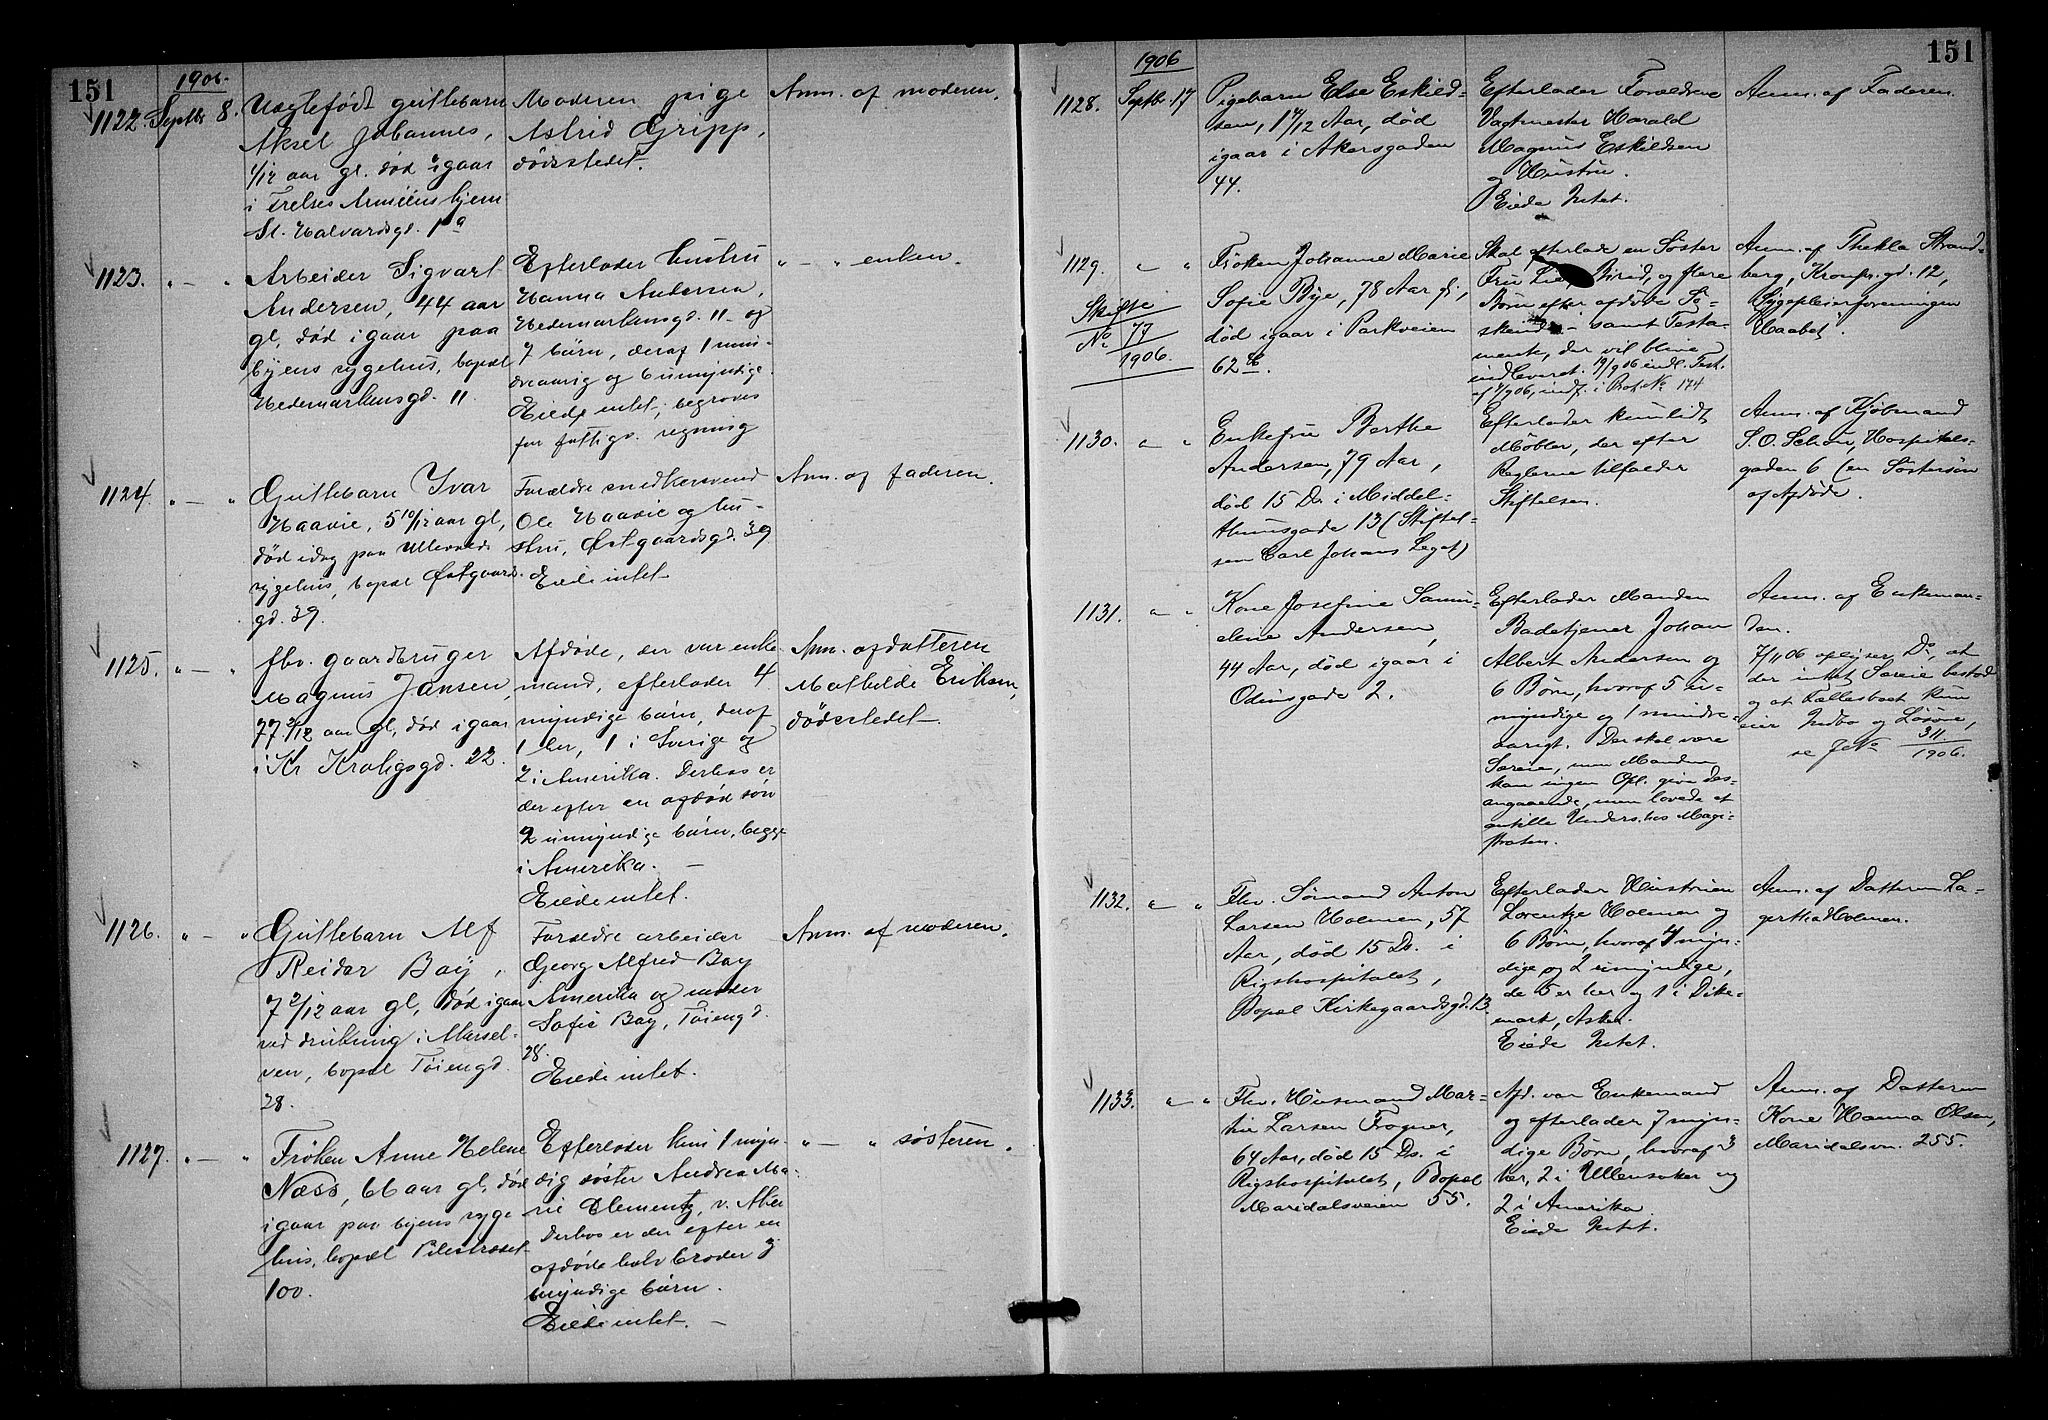 151
1906.
1122. Septbr 8.
Uægtefødt guttebarn
Aksel Johannes,
1/12 aar gl. død igaar
i Frelses Armeens hjem
St. Halvardsgd. 1a
Moderen pige
Astrid Gripp,
dødsstedet.
Anm. af moderen.
1123. " — "
Arbeider Sigvart
Andersen, 44 aar
gl, død igaar paa
byens sygehus, bopæl
Hedemarkensgd. 11
Efterlader hustru
Hanna Andersen,
Hedemarkensgd. 11 og
7 børn, deraf 1 min-
dreaarig og 6 umyndige.
Eiede intet; begraves
for fattigv. regning
" — " enken.
1124. " — "
Guttebarn Ivar
Haavie, 5 10/12 aar gl,
død idag paa Ullevaals
sygehus, bopæl Østgaards
gd. 39.
Forældre snedkersvend
Ole Haavie og hu-
stru, Østgaardsgd. 39
Eiede intet.
Anm. af faderen.
1125. " — "
fhv. gaardbruger
Magnus Jansen,
77 2/12 aar gl, død igaar
i Kr Kroghsgd. 22.
Afdøde, der var enke-
mand, efterlader 4
myndige børn, deraf
1 her, 1 i Sverige og
2 i Amerika. Derhos er
der efter en afdød søn
2 umyndige børn, begge
i Amerika. —
Eiede intet.
Anm. af datteren
Mathilde Eriksen,
dødsstedet.
1126. " — "
Guttebarn Alf
Reidar Bay,
7 2/12 aar gl, død igaar
ved drukning i Akersel-
ven, bopæl Tøiengd.
28.
Forældre arbeider
Georg Alfred Bay
Amerika og moder
Sofie Bay, Tøiengd.
28.
Eiede intet.
Anm. af moderen.
1127. " — "
Frøken Anne Helene
Næss, 66 aar gl, død
igaar paa byens syge
hus, bopæl Pilestrædet
100.
Efterlader kun 1 myn-
dig søster Andrea Ma-
rie Clementz, v. Aker
Derhos er der efter en
afdøde halv broder
myndige børn.
Eiede intet. —
" — " søsteren.
151
1906
1128. Septbr. 17
Pigebarn Else Eskild-
sen, 1 11/12 Aar, død
igaar i Akersgaden
44.
Efterlader Forældrene
Vagtmester Harald
Magnus Eskildsen
og Hustru.
Eiede Intet.
Anm. af Faderen.
1129. " — "
Skifte
No 77
1906.
Frøken Johanne Marie
Sofie Bye, 78 Aar gl,
død igaar i Parkveien
62 b.
Skal efterlade en Søster
Fru Biri, og flere
Børn efter afdøde Sø-
skende — samt Testa-
mente, der vil blive
indleveret. 19/9 06 indl. Test.
af 4/9 06, indf. i Prot. No 174
Anm. af Thekla Strand-
berg, Kronpr. gd. 12,
Sygepleierforeningen
"Haabet".
1130. " "
Enkefru Berthe
Andersen, 79 Aar,
død 15 Ds. i Middel-
thunsgade 13 (Stiftel-
sen Carl Johans Legat)
Efterlader kun lidt
Møbler, der efter
Reglerne tilfalder
Stiftelsen.
Anm. af Kjøbmand
S. O. Schou, Hospitals-
gaden 6 (en Søstersøn
af Afdøde.
1131. " "
Kone Josefine Samu-
eline Andersen,
44 Aar, død igaar i
Odinsgade 2.
Efterlader Manden
Badetjener Johan
Albert Andersen og
6 Børn, hvoraf 5 u-
myndige og 1 mindre-
aarigt. Der skal være
Særeie, men Manden
kan ingen Opl. give des-
angaaende, men lovede at
anstille Unders. hos Magi-
straten.
Anm. af Enkeman-
den.
7/11 06 oplyser Do, at
der intet Særeie bestod
og at Fællesboet kun
eier Indbo og Løsøre,
se JNo 311
1906.
1132. " "
Fhv. Sømand Anton
Larsen Holmen, 57
Aar, død 15 Ds. i
Rigshospitalet,
Bopæl Kirkegaardsgd. 13.
Efterlader Hustruen
Lorentze Holmen og
6 Børn, hvoraf 4 myn-
dige og 2 umyndige,
de 5 er her og 1 i Dike-
mark, Asker.
Eiede Intet.
Anm. af Datteren La-
gertha Holmen.
1133. " — "
Fhv. Husmand Mar-
tin Larsen Frogner,
64 Aar, død 15 Ds. i
Rigshospitalet, Bopæl
Maridalsveien 55.
Afd. var Enkemand
og efterlader 7 myn-
dige Børn, hvoraf 3
her, 2 i Ullensaker og
2 i Amerika.
Eiede Intet.
Anm. af Datteren
Kone Hanna Olsen,
Maridalsvn. 255.